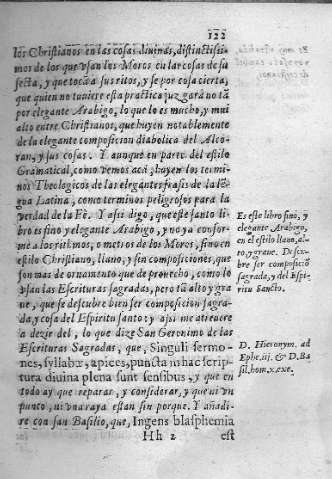 122
los Christianos en las cosas diuinas, distinctissi-
mos de los que vsan los Moros en las cosas de su
secta, y que tocã a sus ritos, y se por cosa cierta,
que quien no tuuiere esta practica juzgarà no tã
por elegante Arabigo, lo que lo es mucho, y mui
alto entre Christianos, que huyen notablemente
de la elegante composicion diabolica del Alco-
ran, y sus cosas. Y aunque en parte del estilo
Gramatical, como vemos acà, huyen los termi-
nos Theologicos de las elegantes frasis de la lẽ-
gua Latina, como terminos peligrosos para la
verdad de la Fè. Y assi digo, que este santo li-
bro es fino y elegante Arabigo, y no ya confor-
me a los rithmos, o metros de los Moros, sino en
estilo Christiano, llano, y sin composiciones, que
son mas de ornamento que de prouecho, como lo
van las Escrituras sagradas, pero tã alto y gra
ue, que se descubre bien ser composicion sagra-
da, y cosa del Espiritu santo: y assi me atreuere
a dezir del, lo que dize San Geronimo de las
Escrituras Sagradas, que, Singuli sermo-
nes, syllabæ, apices, puncta in hac scrip-
tura diuina plena sunt sensibus, y que en
todo ay que reparar, y considerar, y que ni vn
punto, ni vna raya estan sin porque. Y añadi-
re con san Basilio, que, Ingens blasphemia
Hh 2 est
Es este libro fino, y
elegante Arabigo,
en el estilo llano, al-
to, y graue. Descu-
bre ser composiciõ
sagrada, y del Espi-
ritu Sancto.
D. Hieronym. ad
Ephe. iij. & D. Ba
sil. hom. x. exe.